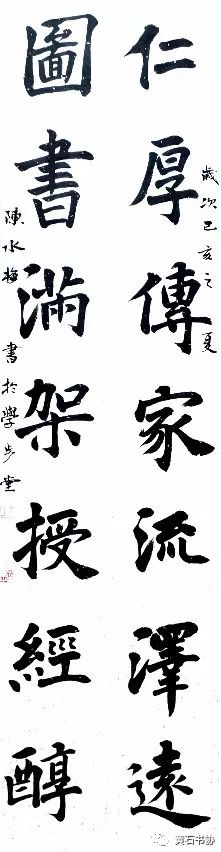 仁厚傳家流澤遠
歲次己亥之夏
圖書滿架授經醇
陳水梅書於學步堂
黄石书协